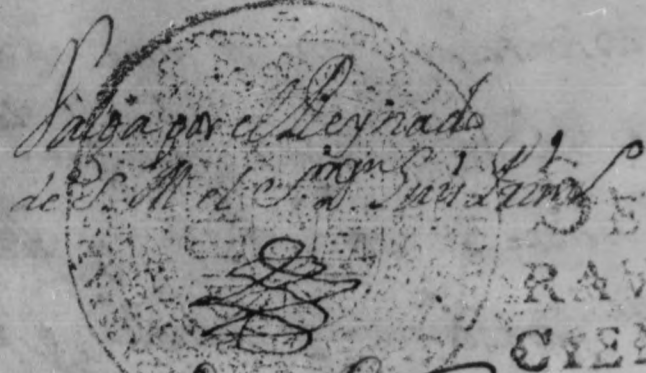 Valga por el Reynado
de S. M. el S.r D.n Luis Prim.o
SE
RAV
CIEN